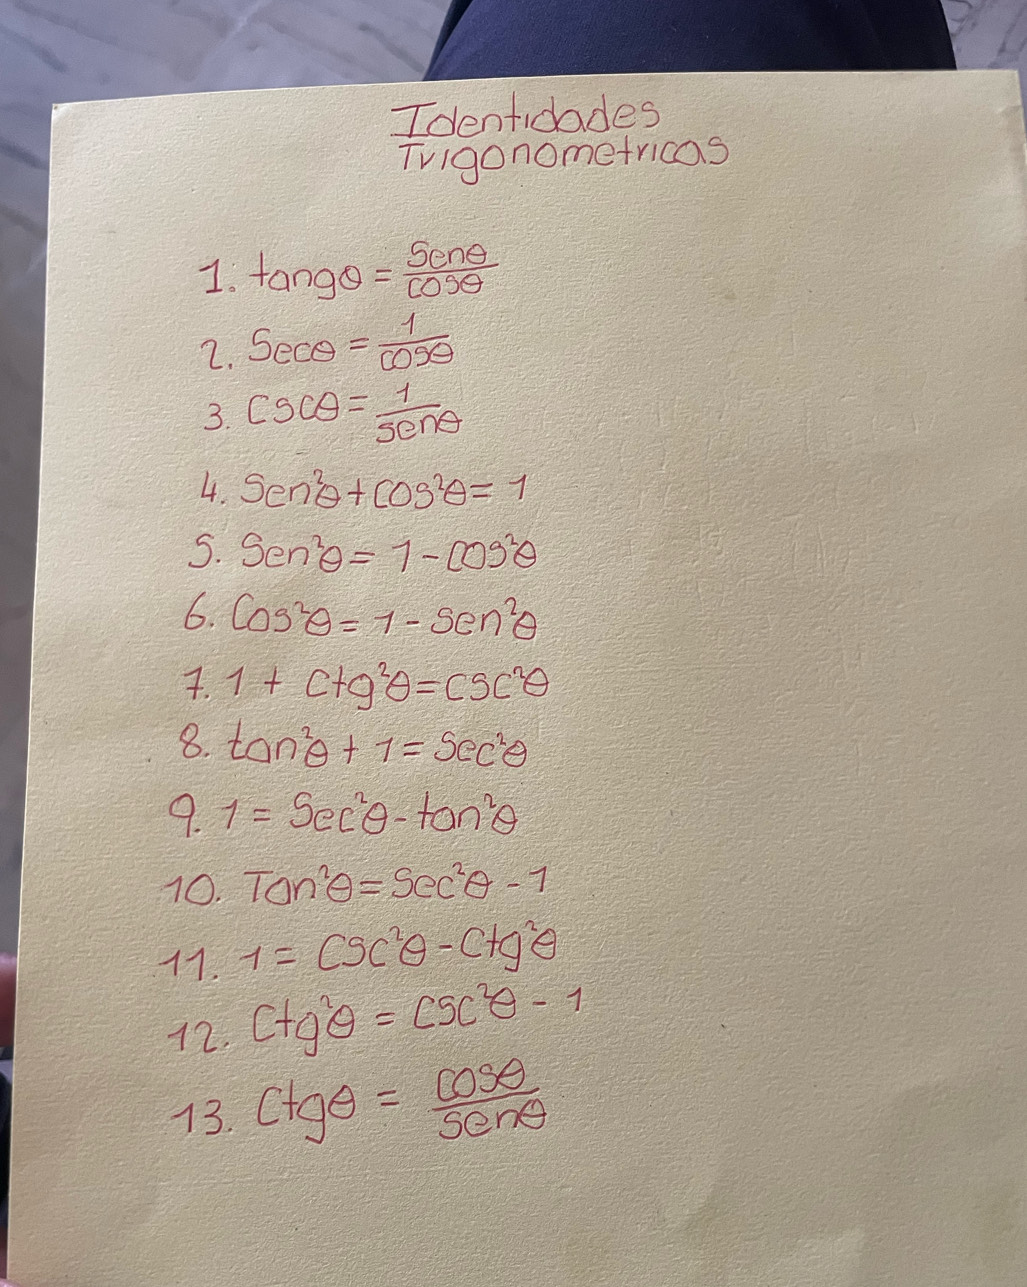 Identidades
Trigonometricas
1. tangθ = senθ/cosθ
2. Secθ = 1/cosθ
3. Cscθ = 1/senθ
4. Sen²θ + cos²θ = 1
5. Sen²θ = 1 - cos²θ
6. Cos²θ = 1 - sen²θ
7. 1 + Ctg²θ = csc²θ
8. tan²θ + 1 = Sec²θ
9. 1 = Sec²θ - tan²θ
10. Tan²θ = Sec²θ - 1
11. 1 = Csc²θ - Ctg²θ
12. Ctg²θ = Csc²θ - 1
13. Ctgθ = cosθ/senθ